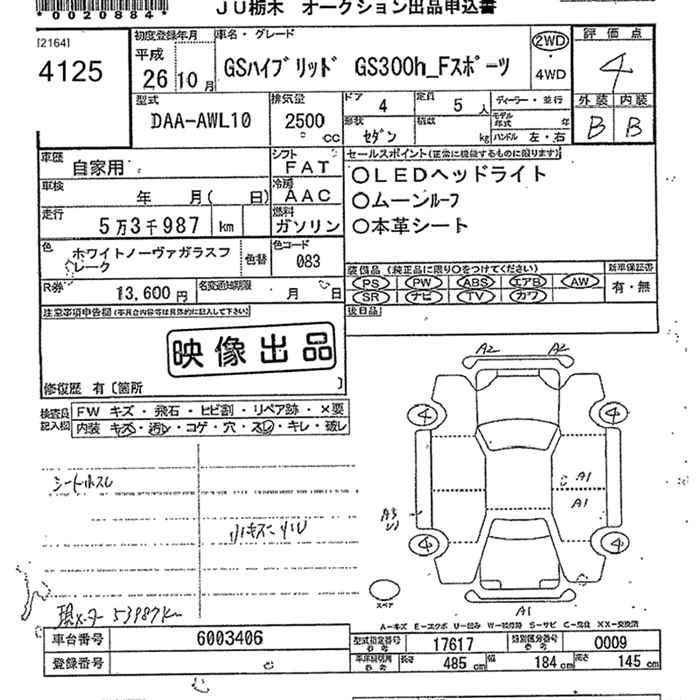 *0020884*
JU栃木 オークション出品申込書
[2164]
4125
初度登録年月
平成
26年10月
車名・グレード
GSハイブリッド GS300h_Fスポーツ
2WD
・
4WD
評価点
4
外装 内装
B B
型式
DAA-AWL10
排気量
2500
cc
ドア 4
定員 5 人
形状
セダン
積載
kg
ディーラー・並行
モデル年式 年
ハンドル 左・右
車歴
自家用
シフト
FAT
車検
年 月( 日)
冷房
AAC
走行
5万3千987 km
燃料
ガソリン
色
ホワイトノーヴァガラスフレーク
色替
色コード
083
R券
13,600円
名変通知期限
月 日
セールスポイント(正常に機能するものに限ります)
○LEDヘッドライト
○ムーンルーフ
○本革シート
装備品(純正品に限り○をつけてください)
PS PW ABS エアB AW
SR ナビ TV カワ
新車保証書
有・無
後日品
注意事項申告欄(車両内容等は具体的に記入して下さい)
映像出品
修復歴 有[箇所 ]
検査員記入欄
FW キズ・飛石・ヒビ割・リペア跡・×要
内装 キズ・汚レ・コゲ・穴・スレ・キレ・破レ
シートスレ
小キズ・凹
現メーター 53987km
A2 A2
4 4
A1
A1
A3
U1
4 4
A1
スペア
A-キズ E-エクボ U-凹み W-補修跡 S-サビ C-腐食 XX-交換済
車台番号
6003406
登録番号
型式指定番号
参考
17617
類別区分番号
参考
0009
車庫証明用
参考
長さ 485 cm
幅 184 cm
高さ 145 cm